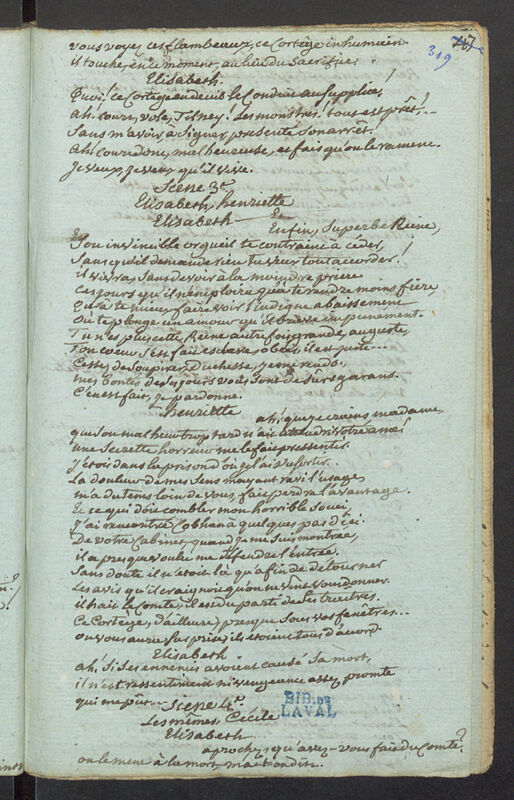 319
vous voyez ces flambeaux, ce Cortège inhumain
il touche, en ce moment, au lieu du Sacrifice.
Elisabeth
Quoi! ce Cortège au Conduit au Supplice!
ah. cours, vole, Tilney. Les monstres. tout est prêt...?
Sans m'avoir, à Signer, présenté Son arrêt!
ah! cours donc, malheureuse, et fais qu'on le ramene.
Je veux, je veux qu'il vive.
Scene 3e
Elisabeth, henriette
Elisabeth
Enfin, Superbe Reine,
Ton invincible orgueil te contraint à céder,
Sans qu'il demande rien tu veux tout accorder!
il vivra, Sans devoir à la moindre priere
Ces jours qu'il n'emploira qu'à te rendre moins fiere,
Qu'à te mieux faire voir l'indigne abaissement
Où te plonge un amour qu'il brave impunement.
Tu n'es plus cette Reine autrefois grande, auguste,
Ton coeur s'est fait esclave, obéis, il est juste...
Cessez de soupirer, Duchesse, je me rends.
mes bontés de ses jours vous Sont de Sûrs garans.
C'en est fait, je pardonne.
henriette
ah! que je crains, madame,
que Son malheur trop tard n'ait attendri votre ame!
une Secrette horreur me le fait pressentir.
J'étois dans la prison d'où je l'ai vu Sortir...
La douleur de mes Sens m'ayant ravi l'usage,
m'a du tems loin de vous, fait perdre l'avantage.
Et ce qui doit combler mon horrible Souci,
J'ai rencontré Cobham à quelques pas d'ici.
De votre Cabinet, quand je me suis montrée,
il a presque voulu me défendre l'entrée.
Sans doute il n'étoit là qu'afin de détourner
Les avis qu'il craignoit qu'on ne vînt vous donner.
il hait le Comte, il est du parti de Ses traitres.
Ce Cortège, d'ailleurs, presque Sous vos fenêtres...
on vous aura Surprise, ils étoient tous d'accord
Elisabeth
ah! Si Ses ennemis avoient causé Sa mort,
il n'est ressentiment ni vengeance assez promte
qui me pût...
Scene 4e
Les mêmes, Cécile
Elisabeth
aprochez, qu'avez-vous fait du Comte?
on le mene à la mort, m'a-t-on dit...
BIB. DE
LAVAL